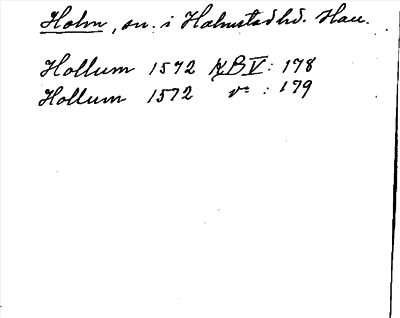 Holm, sn. i Halmstad hd. Hall.
Hollum 1572 NBV: 178
Hollum 1572 " : 179